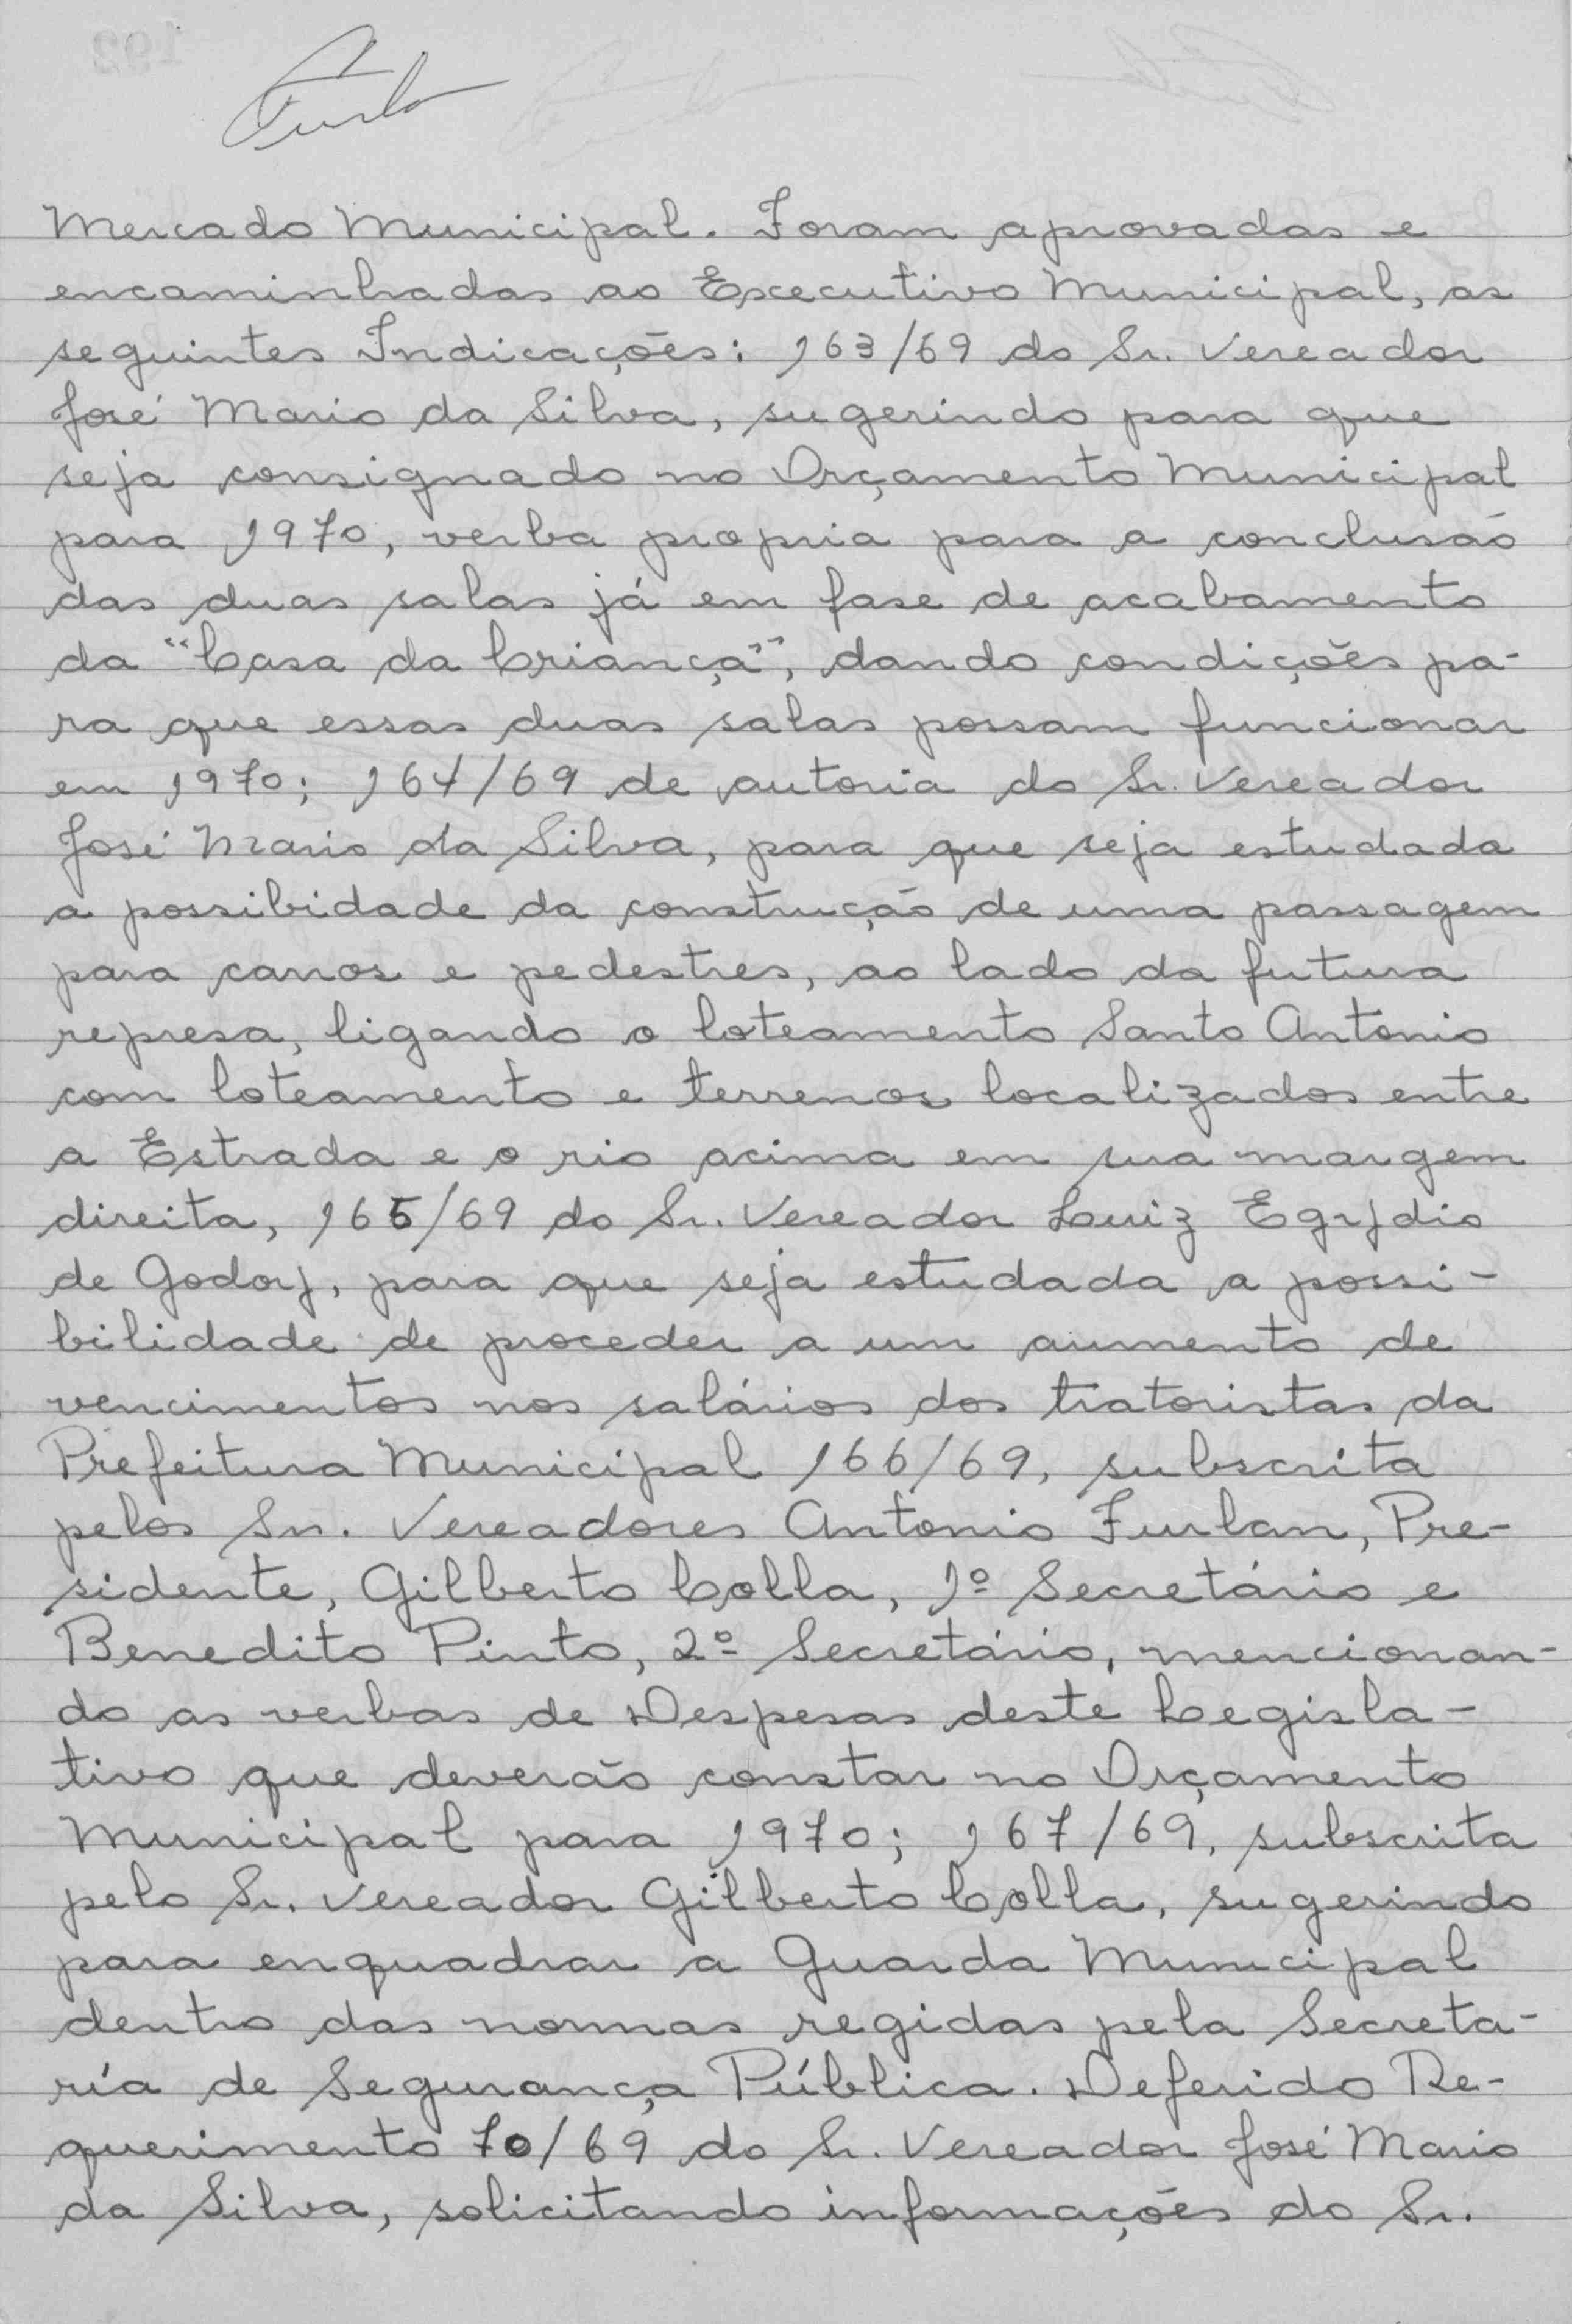 Furlan
Mercado Municipal. Foram aprovadas e
encaminhadas ao Executivo Municipal, as
seguintes Indicações: 163/69 do Sr. Vereador
José Mario da Silva, sugerindo para que
seja consignado no Orçamento Municipal
para 1970, verba propria para a conclusão
das duas salas já em fase de acabamento
da "Casa da Criança", dando condições pa-
ra que essas duas salas possam funcionar
em 1970; 164/69 de autoria do Sr. Vereador
José Mario da Silva, para que seja estudada
a possibidade da construção de uma passagem
para carros e pedestres, ao lado da futura
represa, ligando o loteamento Santo Antonio
com loteamento e terrenos localizados entre
a Estrada e o rio acima em sua margem
direita, 165/69 do Sr. Vereador Luiz Egydio
de Godoy, para que seja estudada a possi-
bilidade de proceder a um aumento de
vencimentos nos salários dos tratoristas da
Prefeitura Municipal 166/69, subscrita
pelos Srs. Vereadores Antonio Furlan, Pre-
sidente, Gilberto Colla, 1º Secretário e
Benedito Pinto, 2º Secretário, mencionan-
do as verbas de Despesas deste Legisla-
tivo que deverão constar no Orçamento
Municipal para 1970; 167/69, subscrita
pelo Sr. Vereador Gilberto Colla, sugerindo
para enquadrar a Guarda Municipal
dentro das normas regidas pela Secreta-
ría de Segurança Pública. Deferido Re-
querimento 70/69 do Sr. Vereador José Mario
da Silva, solicitando informações do Sr.